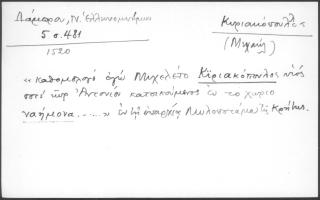 Λάμπρου, Ν. Ἑλληνομνήμων
5 σ. 481
1520
Κυριακόπουλος
(Μιχαήλ)
« καθομολογῶ ἐγὼ Μιχελέτο Κιριακόπουλος υἱός
ποτὲ κὺρ Ἀντονίου κατοικούμενος ἐν το χωρίο
.....» ἐν τῇ ἐπαρχίᾳ Μυλοποτάμου τῆς Κρήτης.